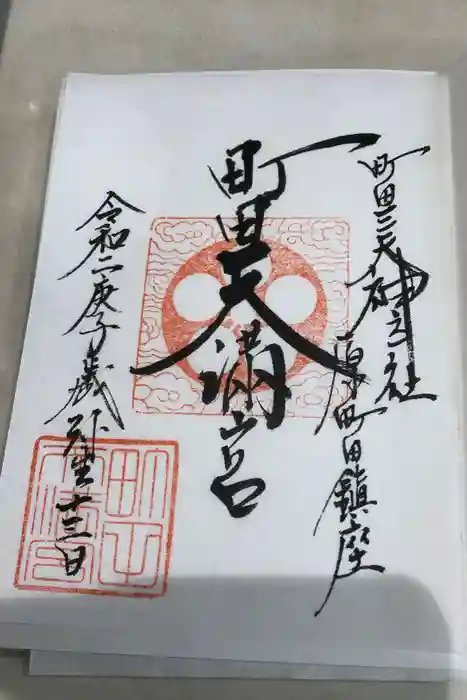 町田三天神之社
原町田鎮座
町田天満宮
令和二庚子歳弥生十三日
町田天満宮